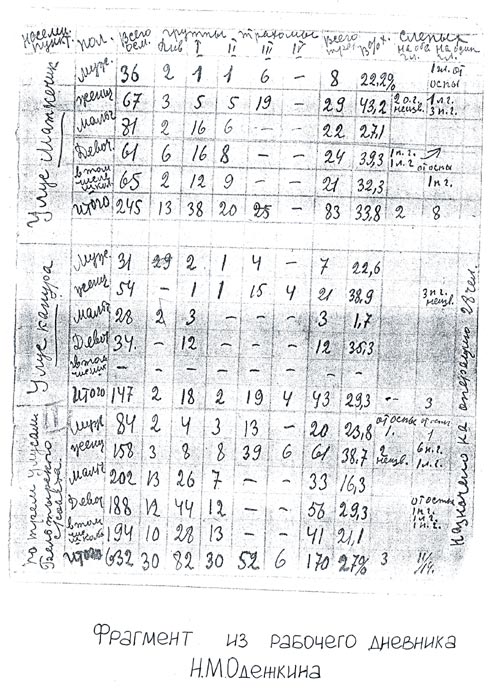 насел. пункт. пол. всего осм. группы трахомы всего трах. в % слепых
I II III IV на оба гл. на один гл.
Улус Манкечик
муж. 36 2 1 1 6 - 8 22,2% 1 гл. от оспы
женщ 67 3 5 5 19 - 29 43,2 2 о.г. неизв. 1 л.г. 3 п.г.
мальч 81 2 16 6 - - 22 27,1
Девоч. 61 6 16 8 - - 24 39,3 1 п.г. 1 л.г. от оспы
в том числе школ. 65 2 12 9 - - 21 32,3 1 п.г.
итого 245 13 38 20 25 - 83 33,8 2 8
Улус капура
муж. 31 29 2 1 4 - 7 22,6
женщ 54 - 1 1 15 4 21 38,9 3 п.г. неизв.
мальч 28 2 3 - - - 3 1,7
Девоч 34. - 12 - - - 12 35,3
в том числе - - - - - - -
итого 147 2 18 2 19 4 43 29,3 - 3
по троем улусам
муж 84 2 4 3 13 - 20 23,8 от оспы 1. 1
женщ 158 3 8 8 39 6 61 38.7 2 неизв. 6 п.г. 1 л.г.
мальч 202 13 26 7 - - 33 16,3
Девоч 188 12 44 12 - - 56 29,3 от оспы 1 п.г.
в том числе школ 194 10 28 13 - - 41 21,1
итого 632 30 82 30 52 6 170 27% 3
назначено на операцию 28 чел.
Фрагмент из рабочего дневника
Н.М.Одежкина